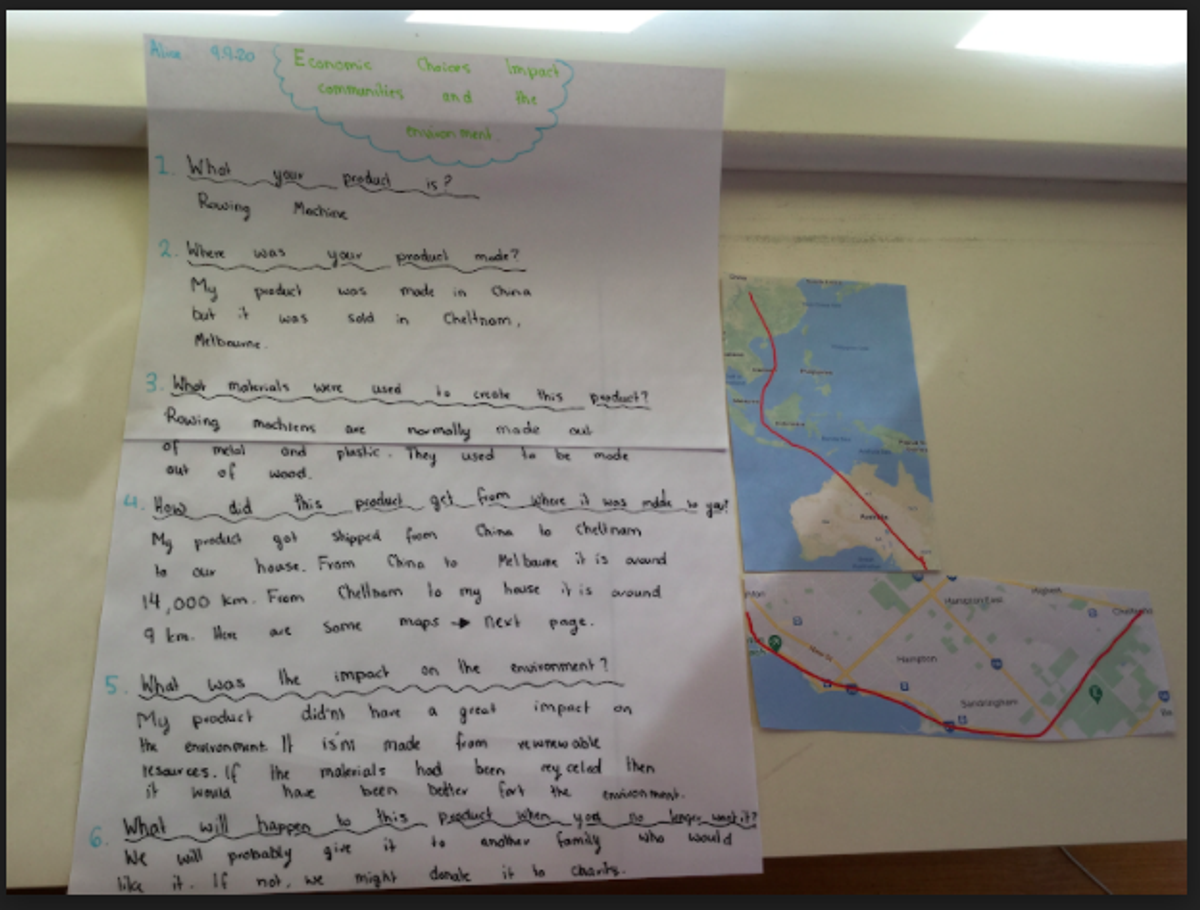 Alice 9.9.20
Economic Choices Impact
communities and the
environment
1. What your product is?
Rowing Machine
2. Where was your product made?
My product was made in China
but it was sold in Cheltnam,
Melbourne.
3. What materials were used to create this product?
Rowing machiens are normally made out
of metal and plastic. They used to be made
out of wood.
4. How did this product get from where it was made to you?
My product got shipped from China to Cheltnam
to our house. From China to Melbourne it is around
14,000 km. From Cheltnam to my house it is around
9 km. Here are some maps → next page.
5. What was the impact on the environment?
My product did'nt have a great impact on
the environment. It is'nt made from rewnewable
resources. If the materials had been reyceled then
it would have been better fort the environment.
6. What will happen to this product when you no longer want it?
We will probably give it to another family who would
like it. If not, we might donate it to charity.
Philippines
Malaysia
Indonesia
Australia
Hampton East
Highett
Cheltenham
New St
Hampton
Sandringham